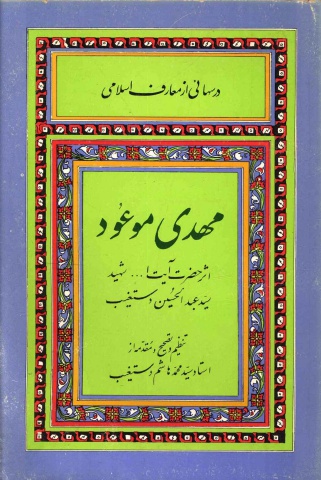 درسهائی از معارف اسلامی
مهدی موعود
اثر حضرت آیت ا... شهید
سید عبدالحسین دستغیب
تنظیم و تصحیح و مقدمه از
استاد سید محمد هاشم دستغیب